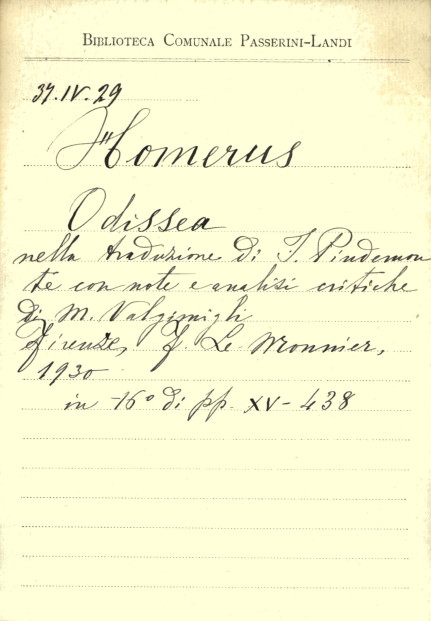 BIBLIOTECA COMUNALE PASSERINI-LANDI
37.IV.29
Homerus
Odissea
nella traduzione di I. Pindemon
te con note e analisi critiche
di M. Valgimigli
Firenze, F. Le Monnier,
1930
in -16° di pp. XV-438